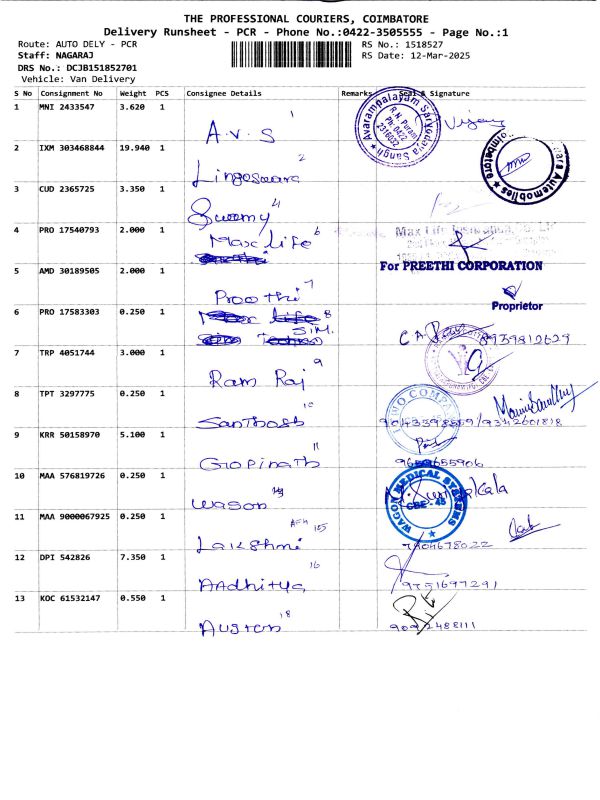 THE PROFESSIONAL COURIERS, COIMBATORE
Delivery Runsheet - PCR - Phone No.:0422-3505555 - Page No.:1
Route: AUTO DELY - PCR
RS No.: 1518527
Staff: NAGARAJ
RS Date: 12-Mar-2025
DRS No.: DCJB151852701
Vehicle: Van Delivery
S No Consignment No Weight PCS Consignee Details Remarks Seal & Signature
1 MNI 2433547 3.620 1 A.V.S 1
Avarampalayam Sarvodaya Sangh
R.N. Puram
Ph: 0422
2316032
2 IXM 303468844 19.940 1 2
Automobiles
3 CUD 2365725 3.350 1 Swamy 4
4 PRO 17540793 2.000 1 Max life 6
Max Life
5 AMD 30189505 2.000 1 Preethi 7
For PREETHI CORPORATION
Proprietor
6 PRO 17583303 0.250 1 S.M. 8
8939812629
7 TRP 4051744 3.000 1 Ram Raj 9
8 TPT 3297775 0.250 1 Santhosh 10
9 KRR 50158970 5.100 1 Gopinath 11
10 MAA 576819726 0.250 1 Wagon
WAGON MEDICAL SYSTEMS
CBE - 45
11 MAA 9000067925 0.250 1 Lakshmi 15
7904678022
12 DPI 542826 7.350 1 Aadhitya 16
9751697291
13 KOC 61532147 0.550 1 18